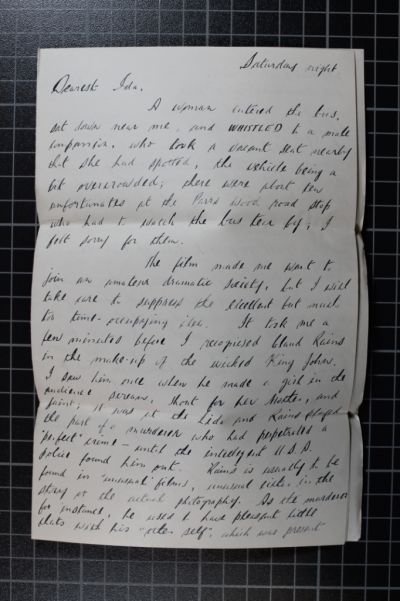 Saturday night.
Dearest Ida,
A woman entered the bus,
sat down near me, and WHISTLED to a male
companion, who took a vacant seat nearby
that she had spotted, the vehicle being a
bit overcrowded; there were about ten
unfortunates at the Parrs Wood road stop
who had to watch the bus tear by; I
felt sorry for them.
The film made me want to
join an amateur dramatic society, but I will
take care to suppress the excellent but much
too time-occupying idea. It took me a
few minutes before I recognised Claud Rains
in the make-up of the wicked King John.
I saw him once when he made a girl in the
audience scream, shout for her mother, and
faint; it was at the Lido and Rains played
the part of a murderer who had perpetrated a
"perfect" crime - until the intelligent U.S.A.
police found him out. Rains is usually to be
found in "unusual" films, unusual either in the
story or the actual photography. As the murderer
for instance, he used to have pleasant little
chats with his "other self", which was present